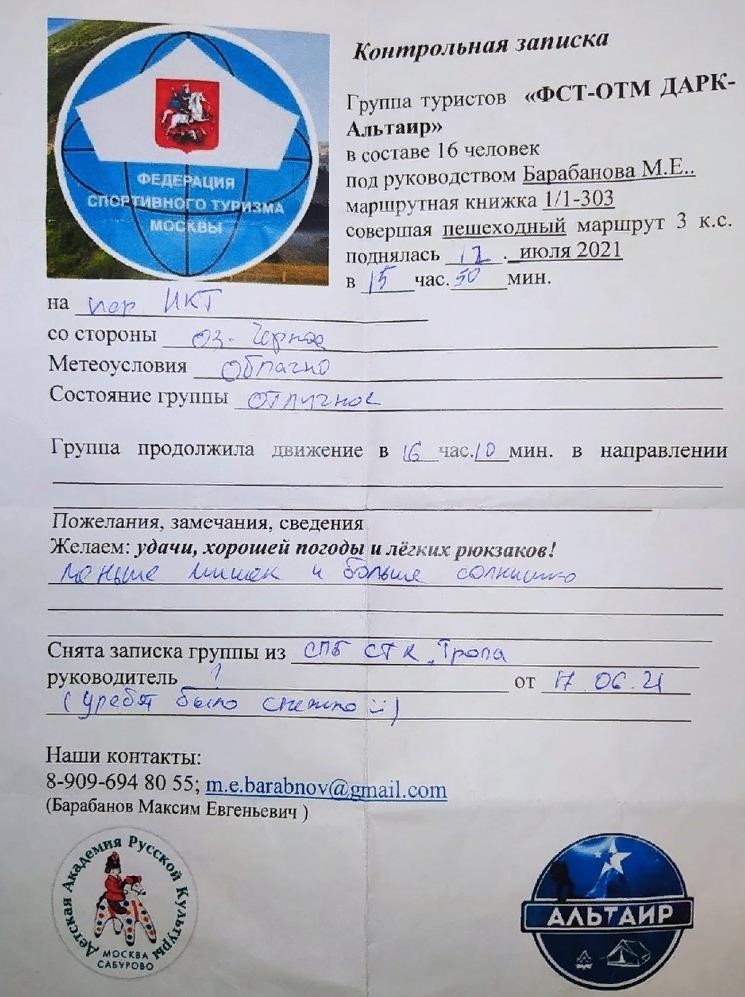 ФЕДЕРАЦИЯ
СПОРТИВНОГО ТУРИЗМА
МОСКВЫ
Контрольная записка
Группа туристов «ФСТ-ОТМ ДАРК-
Альтаир»
в составе 16 человек
под руководством Барабанова М.Е..
маршрутная книжка 1/1-303
совершая пешеходный маршрут 3 к.с.
поднялась 12 . июля 2021
в 15 час. 50 мин.
на пер ИКТ
со стороны оз. Черное
Метеоусловия Облачно
Состояние группы отличное
Группа продолжила движение в 16 час. 10 мин. в направлении
Пожелания, замечания, сведения
Желаем: удачи, хорошей погоды и лёгких рюкзаков!
меньше мишек и больше солнышко
Снята записка группы из СПБ СТК "Тропа
руководитель от 17.06.21
(у ребят было снежно :))
Наши контакты:
8-909-694 80 55; m.e.barabnov@gmail.com
(Барабанов Максим Евгеньевич )
Детская Академия Русской Культуры
МОСКВА
САБУРОВО
АЛЬТАИР